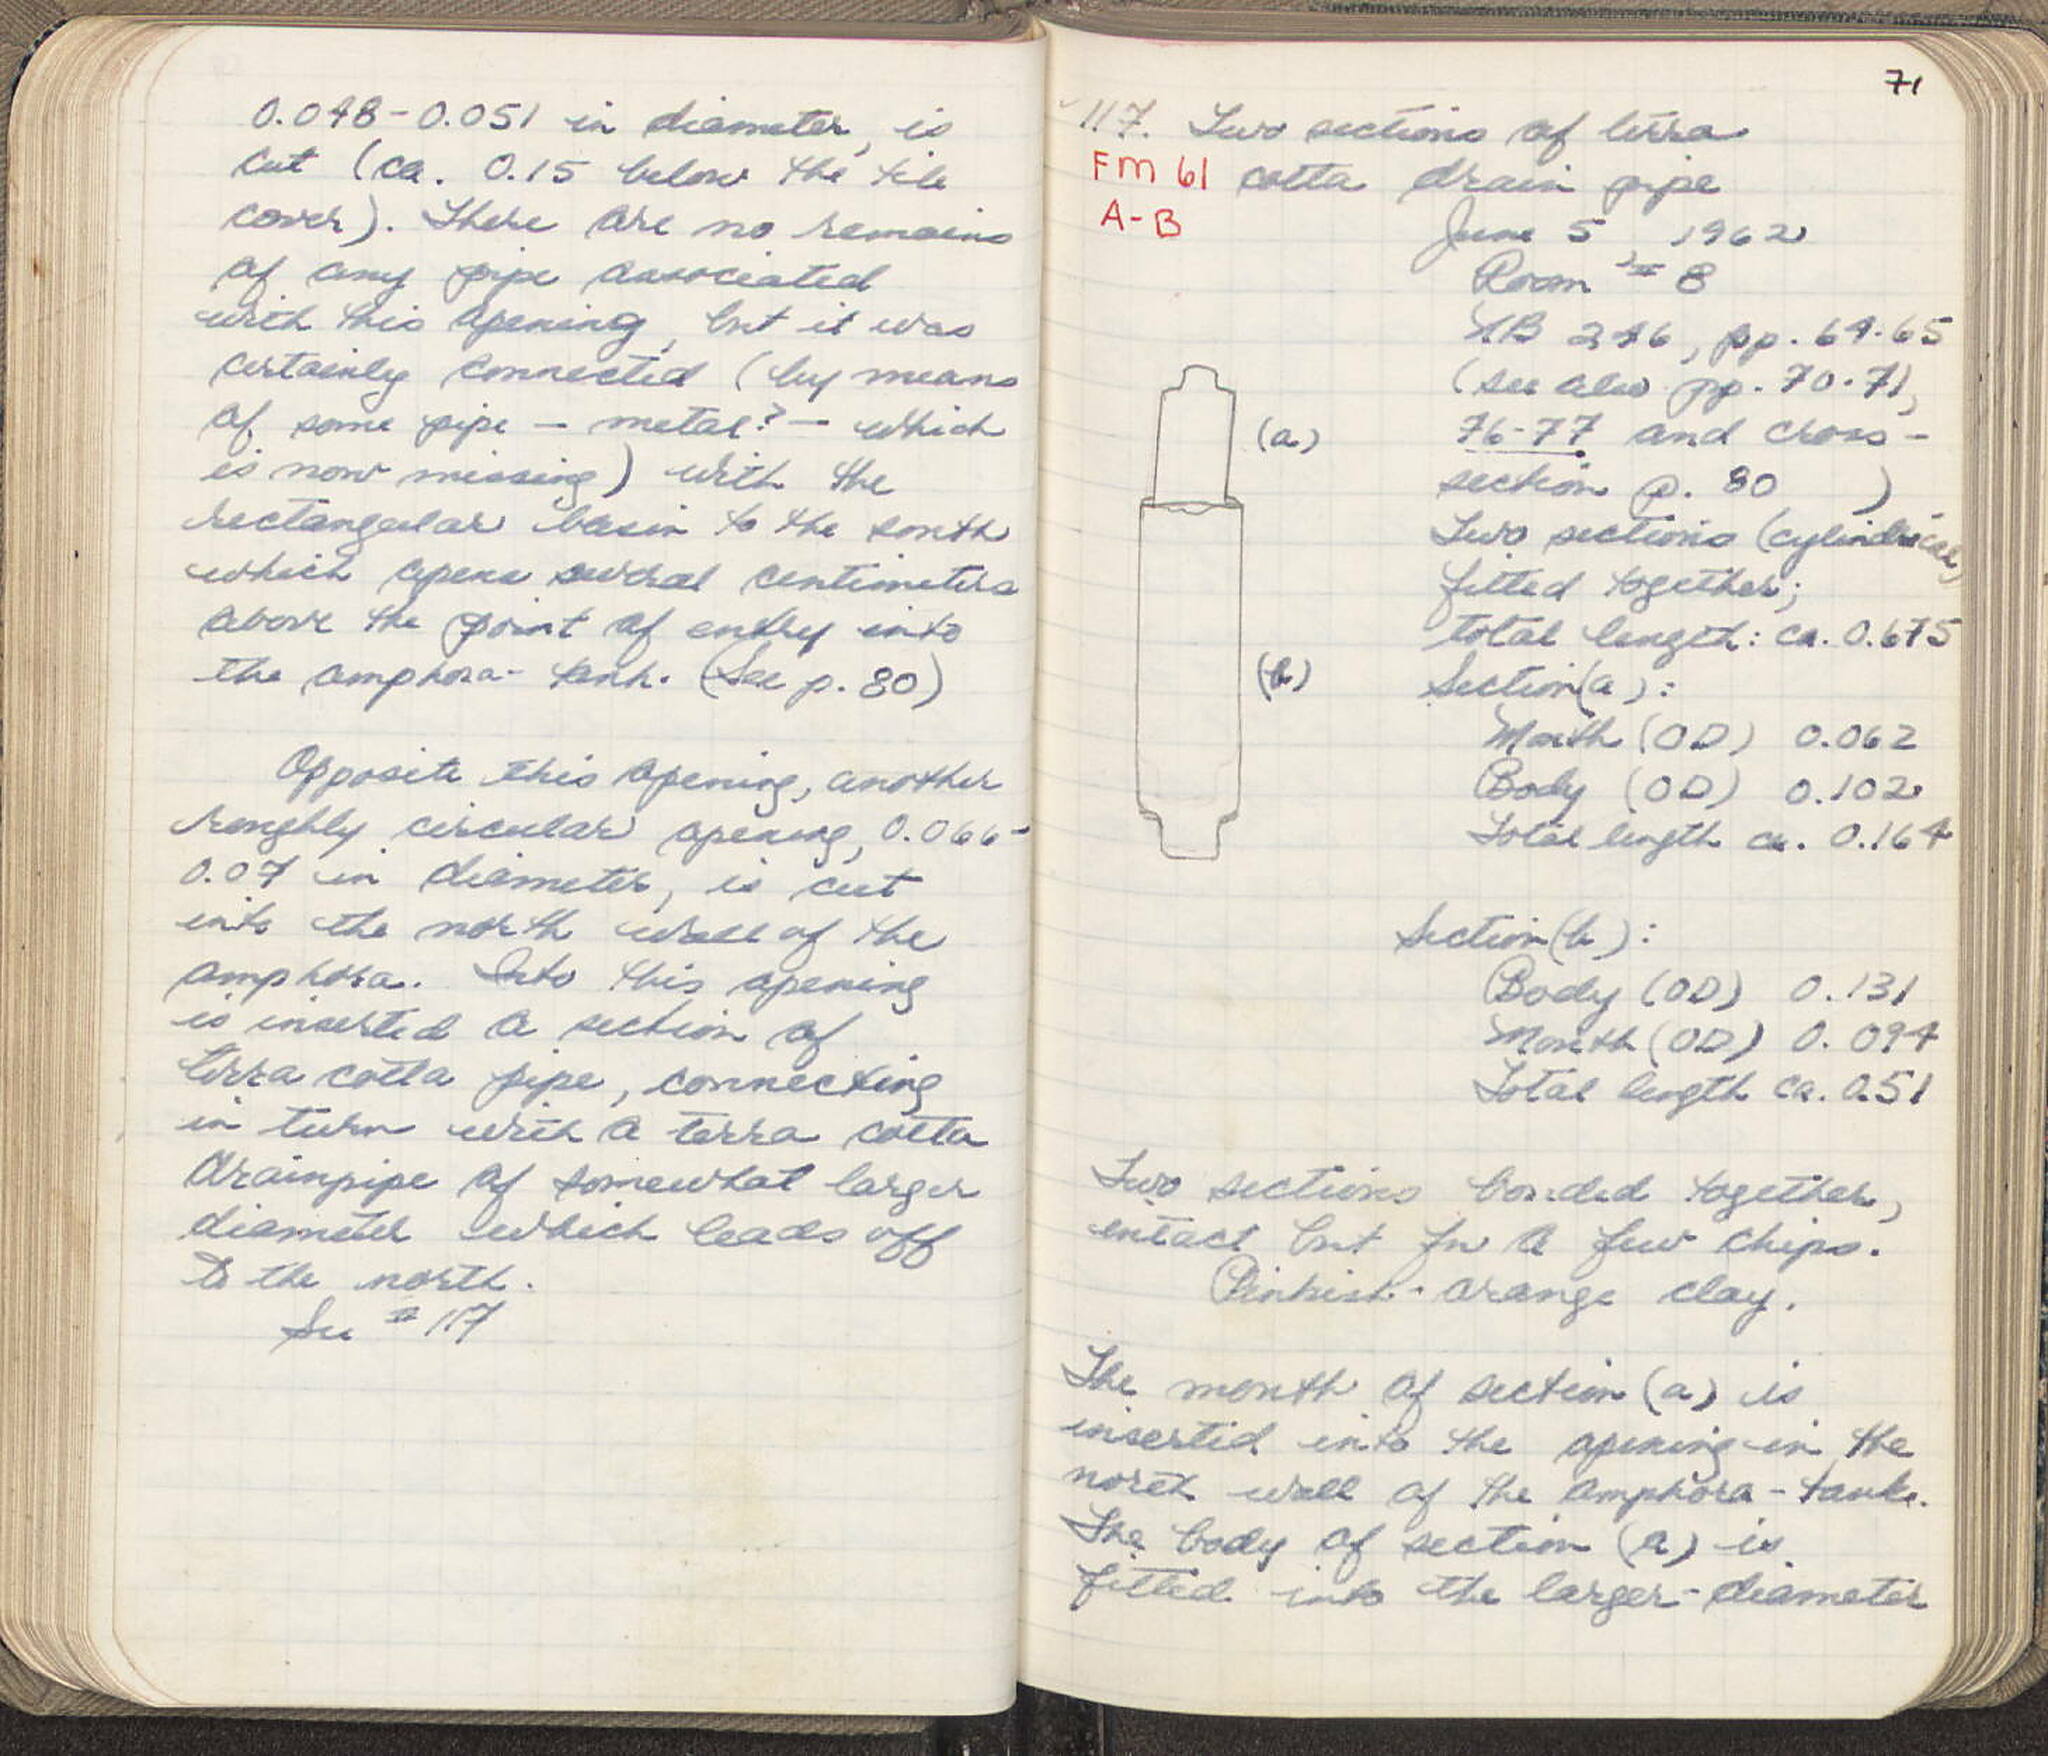 0.048-0.051 in diameter, is
cut (ca. 0.15 below the tile
cover). There are no remains
of any pipe associated
with this opening, but it was
certainly connected (by means
of some pipe — metal? — which
is now missing) with the
rectangular basin to the south
which opens several centimeters
above the point of entry into
the amphora-tank. (See p. 80)
Opposite this opening, another
roughly circular opening, 0.066-
0.07 in diameter, is cut
into the north wall of the
amphora. Into this opening
is inserted a section of
terra cotta pipe, connecting
in turn with a terra cotta
drainpipe of somewhat larger
diameter which leads off
to the north.
See # 117
71
117. Two sections of terra
FM 61 cotta drain pipe
A-B
June 5, 1962
Room # 8
NB 246, pp. 64-65
(see also pp. 70-71,
76-77 and cross-
section p. 80 )
Two sections (cylindrical)
fitted together;
total length: ca. 0.675
(a)
(b)
Section (a):
Mouth (OD) 0.062
Body (OD) 0.102
Total length ca. 0.164
Section (b):
Body (OD) 0.131
Mouth (OD) 0.094
Total length ca. 0.51
Two sections bonded together,
intact but for a few chips.
Pinkish-orange clay.
The mouth of section (a) is
inserted into the opening in the
north wall of the amphora-tank.
The body of section (a) is
fitted into the larger-diameter